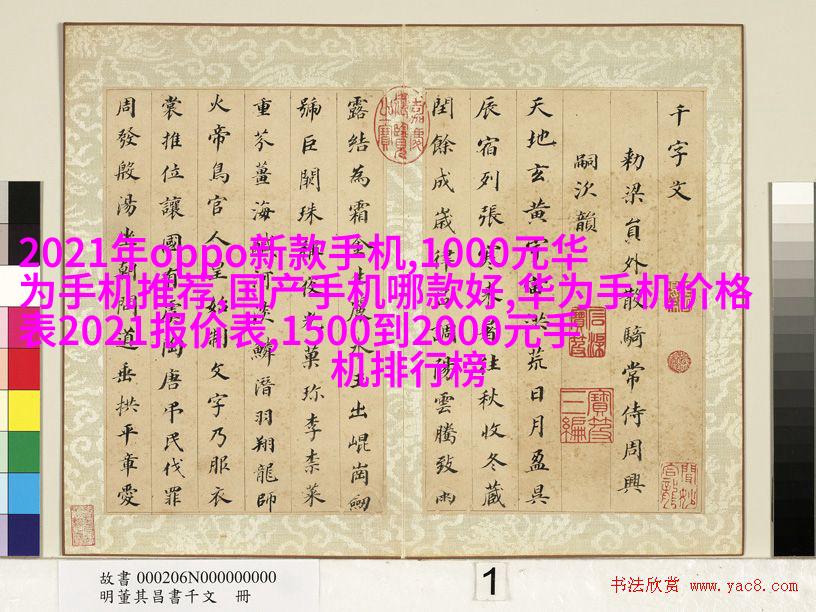 千字文
勅梁員外散騎常侍周興
嗣次韻
天地玄黃宇宙洪荒日月盈昃
辰宿列張寒来暑往秋收冬藏
閏餘成歲律呂調陽雲騰致雨
露結為霜金生麗水玉出崐崗劒
號巨闕珠稱夜光菓珍李柰菜
重芥薑海鹹河淡鱗潛羽翔龍師
火帝鳥官人皇始制文字乃服衣
裳推位讓國有虞陶唐弔民伐罪
周發殷湯坐朝問道垂拱平章愛
嘉慶御覽之寶
石渠寶笈
寶笈三編
2021年oppo新款手机,1000元华
为手机推荐,国产手机哪款好,华为手机价格
表2021报价表,1500到2000元手
机排行榜
故書 000206N000000000
明董其昌書千文 冊
1
书法欣赏 www.yac8.com